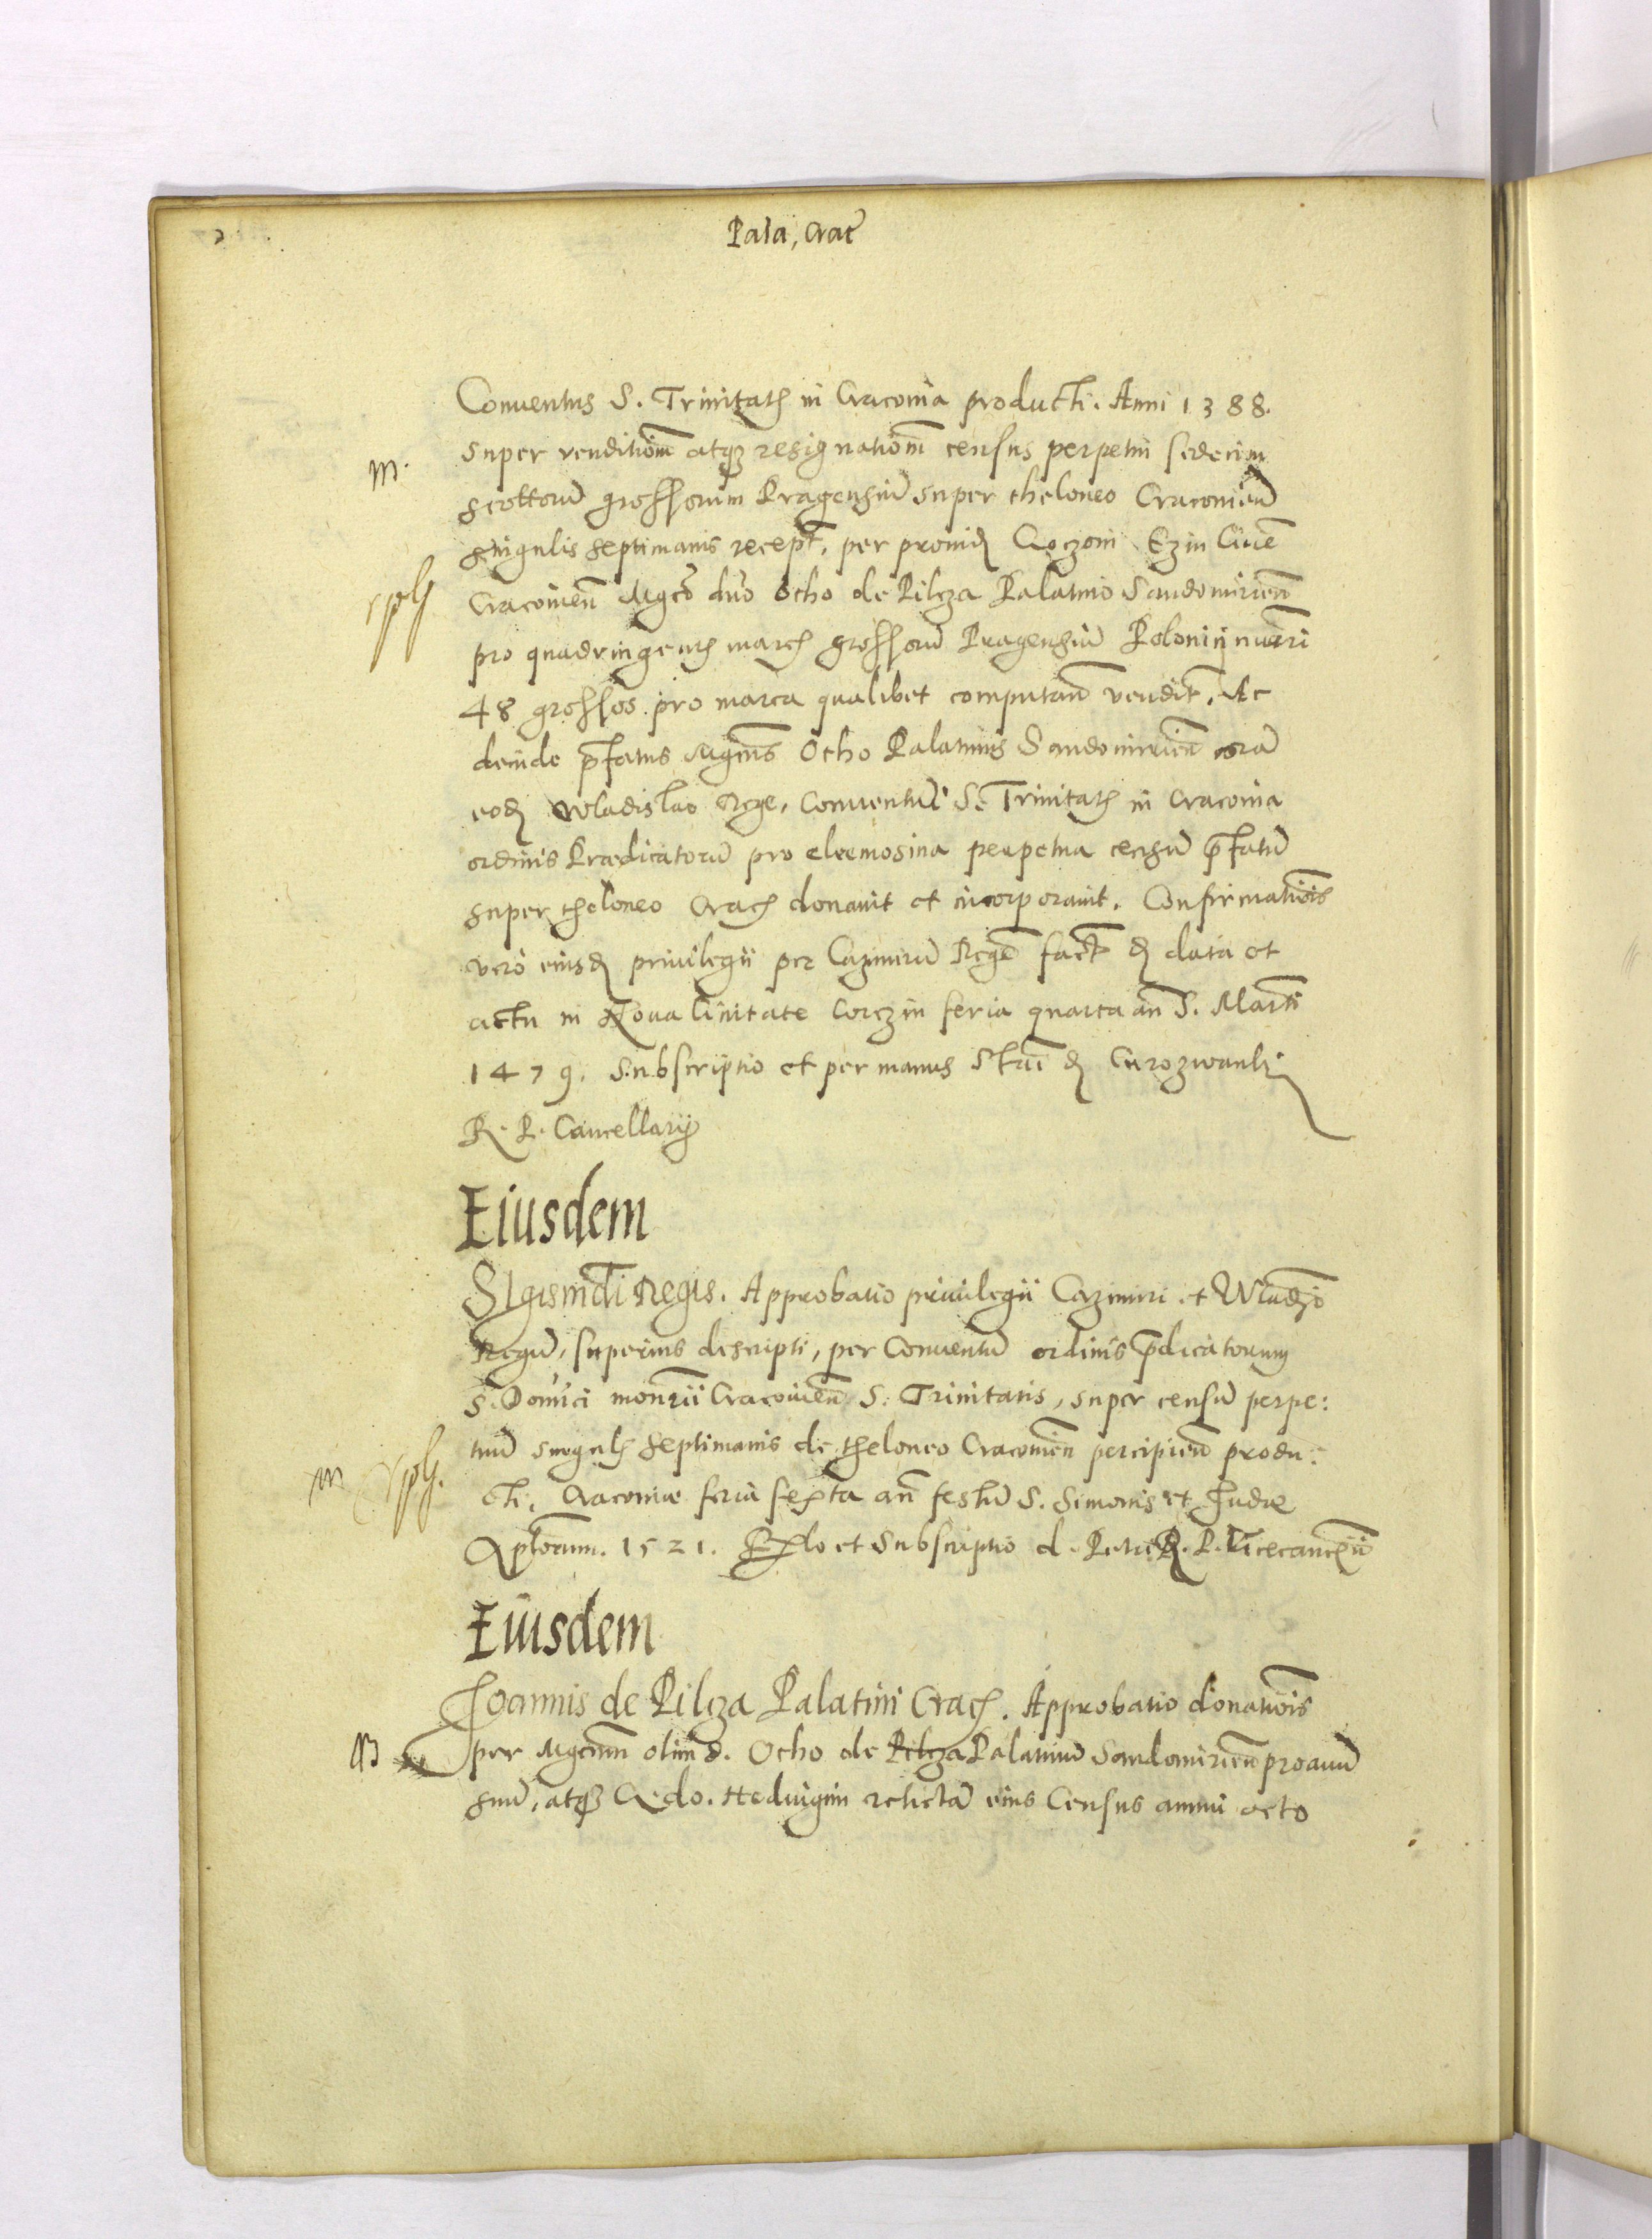 Pala, Crac
Conventus S. Trinitatis in Cracovia producti. Anni 1388.
m. super venditionem atque resignationem census perpetui sedecim
scottorum grossorum Pragensium super theloneo Cracovien
singulis septimanis recept, per provid Civem
Cracovien Mgco dno Otho de Pilcza Palatino Sandomirien
pro quadringentis marcis grossorum Pragensium Polonici numeri
48 grossos pro marca qualibet computan vendit, Ac
deinde pfatus Mgcus Otho Palatinus Sandomirien coram
eod Wladislao Rege, Conventui S. Trinitatis in Cracovia
ordinis Prædicatorum pro eleemosina perpetua censum pfatum
super theloneo Crac donavit et incorporavit. Confirmationis
vero eiusd privilegii per Cazimirum Regem fact d data et
actu in Nova Civitate Corczin feria quarta an S. Martini
1479. Subscriptio et per manus d
R. P. Cancellarij
Eiusdem
Sigismdi Regis. Approbatio privilegii Cazimiri et Wladzo
Regum, superius descripti, per Conventum ordinis pdicatorum
S. Domici monrii Cracovien S. Trinitatis, super censum perpe:
tuum singulis septimanis de theloneo Cracovien percipien produ:
m cti, Cracoviæ feria sexta an festum S. Simonis et Judæ
Aplorum. 1521. Rlo et subscriptio d. Petri R. P. Vicecancrii
Eiusdem
Joannis de Pilcza Palatini Crac. Approbatio donationis
per Mgcum olim d. Otho de Pilcza Palatinum Sandomirien proavum
suum, atque Hedvigim relictam eius Census annui octo